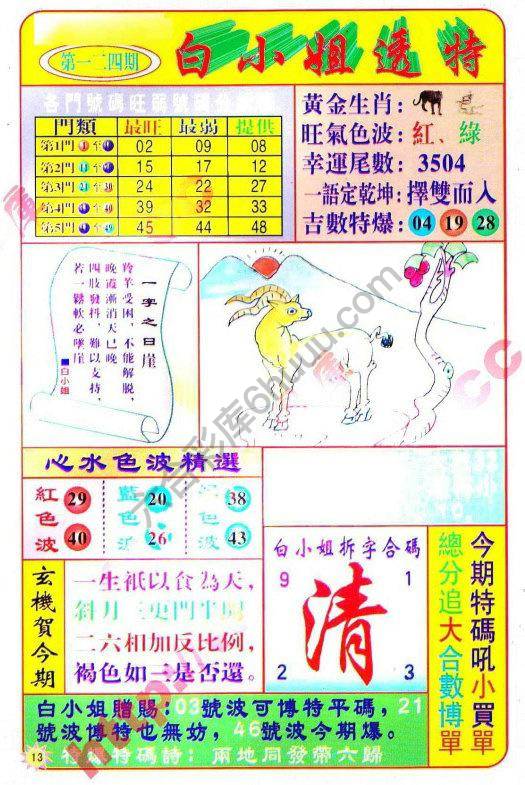 第一二四期
白小姐透特
各門號碼旺弱號碼
門類 最旺 最弱 提供
第1門 1 至 9 02 09 08
第2門 至 15 17 12
第3門 至 24 22 27
第4門 至 39 32 33
第5門 至 49 45 44 48
黃金生肖:
旺氣色波: 紅、綠
幸運尾數: 3504
一語定乾坤: 擇雙而入
吉數特爆: 04 19 28
一字之日崖
羚羊受困，不能解脫，
晚霞漸消天已晚
四肢發抖，難以支持，
若一鬆軟必墜崖
■白小姐
六合彩库6htuuu.com
心水色波精選
紅色波 29 40
藍色 20 26
色波 38 43
玄機賀今期
一生祇以食為天，
斜月三更門半開
二六相加反比例，
褐色如三是否還。
白小姐拆字合碼
9 1
清
2 3
今期特碼吼小買單
總分追大合數博單
白小姐贈賜: 03號波可博特平碼, 21
號波博特也無妨, 46號波今期爆。
特碼詩: 兩地同發帶六歸
13
http:
庫
CC